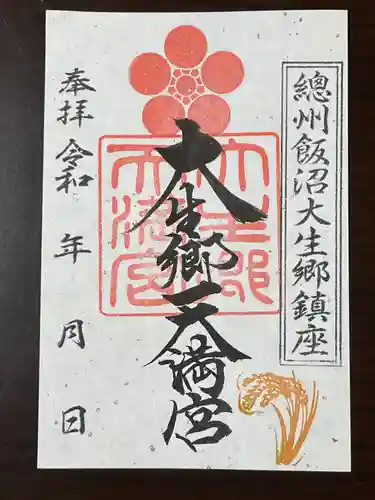 總州飯沼大生郷鎮座
大生郷天満宮
大生郷天満宮
奉拝 令和 年 月 日